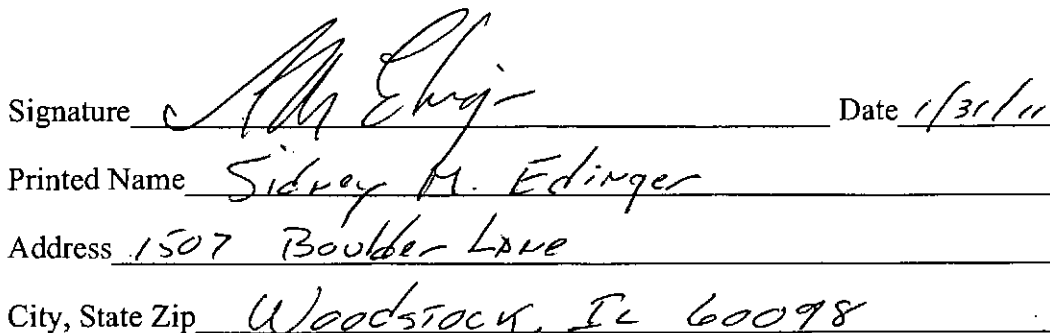 Signature Date 1/31/11
Printed Name Sidney M. Edinger
Address 1507 Boulder Lane
City, State Zip Woodstock, IL 60098